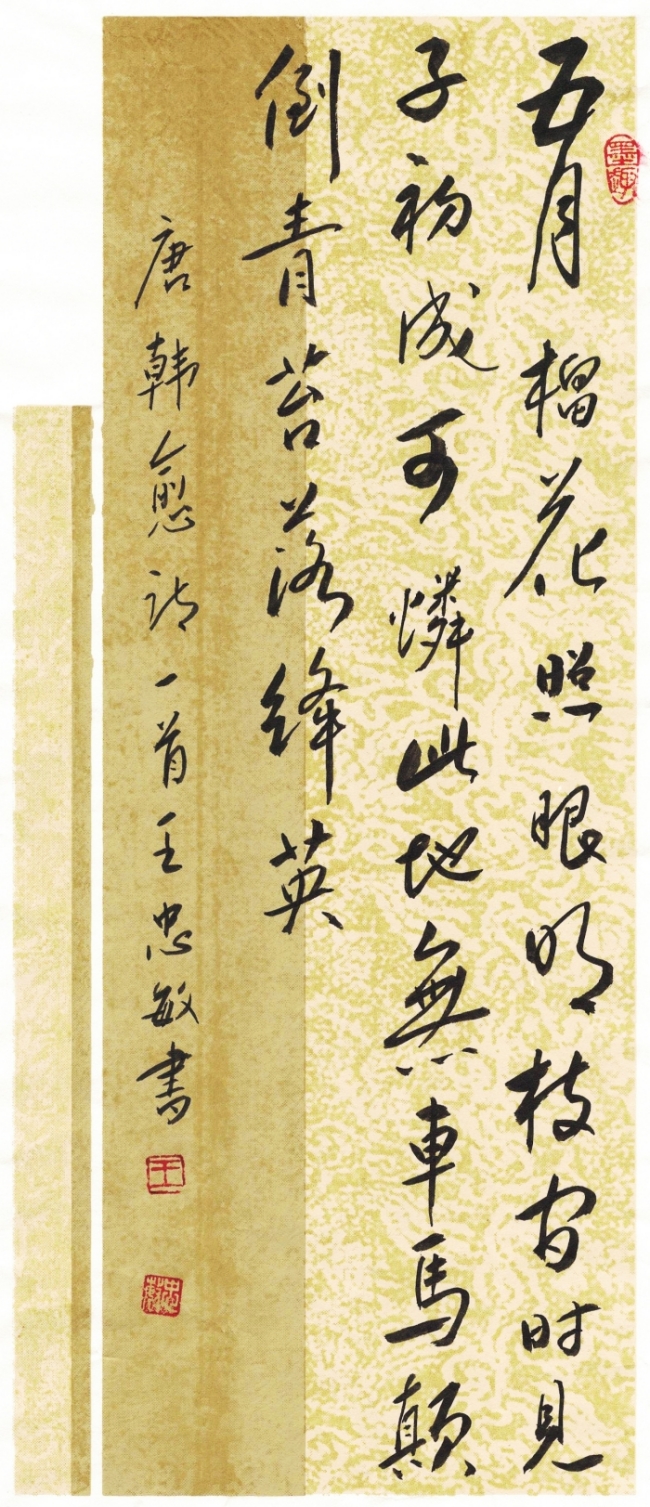 五月榴花照眼明枝间时見
子初成可憐此地無車馬顛
倒青苔落絳英
唐韩愈诗一首王忠敏書
王